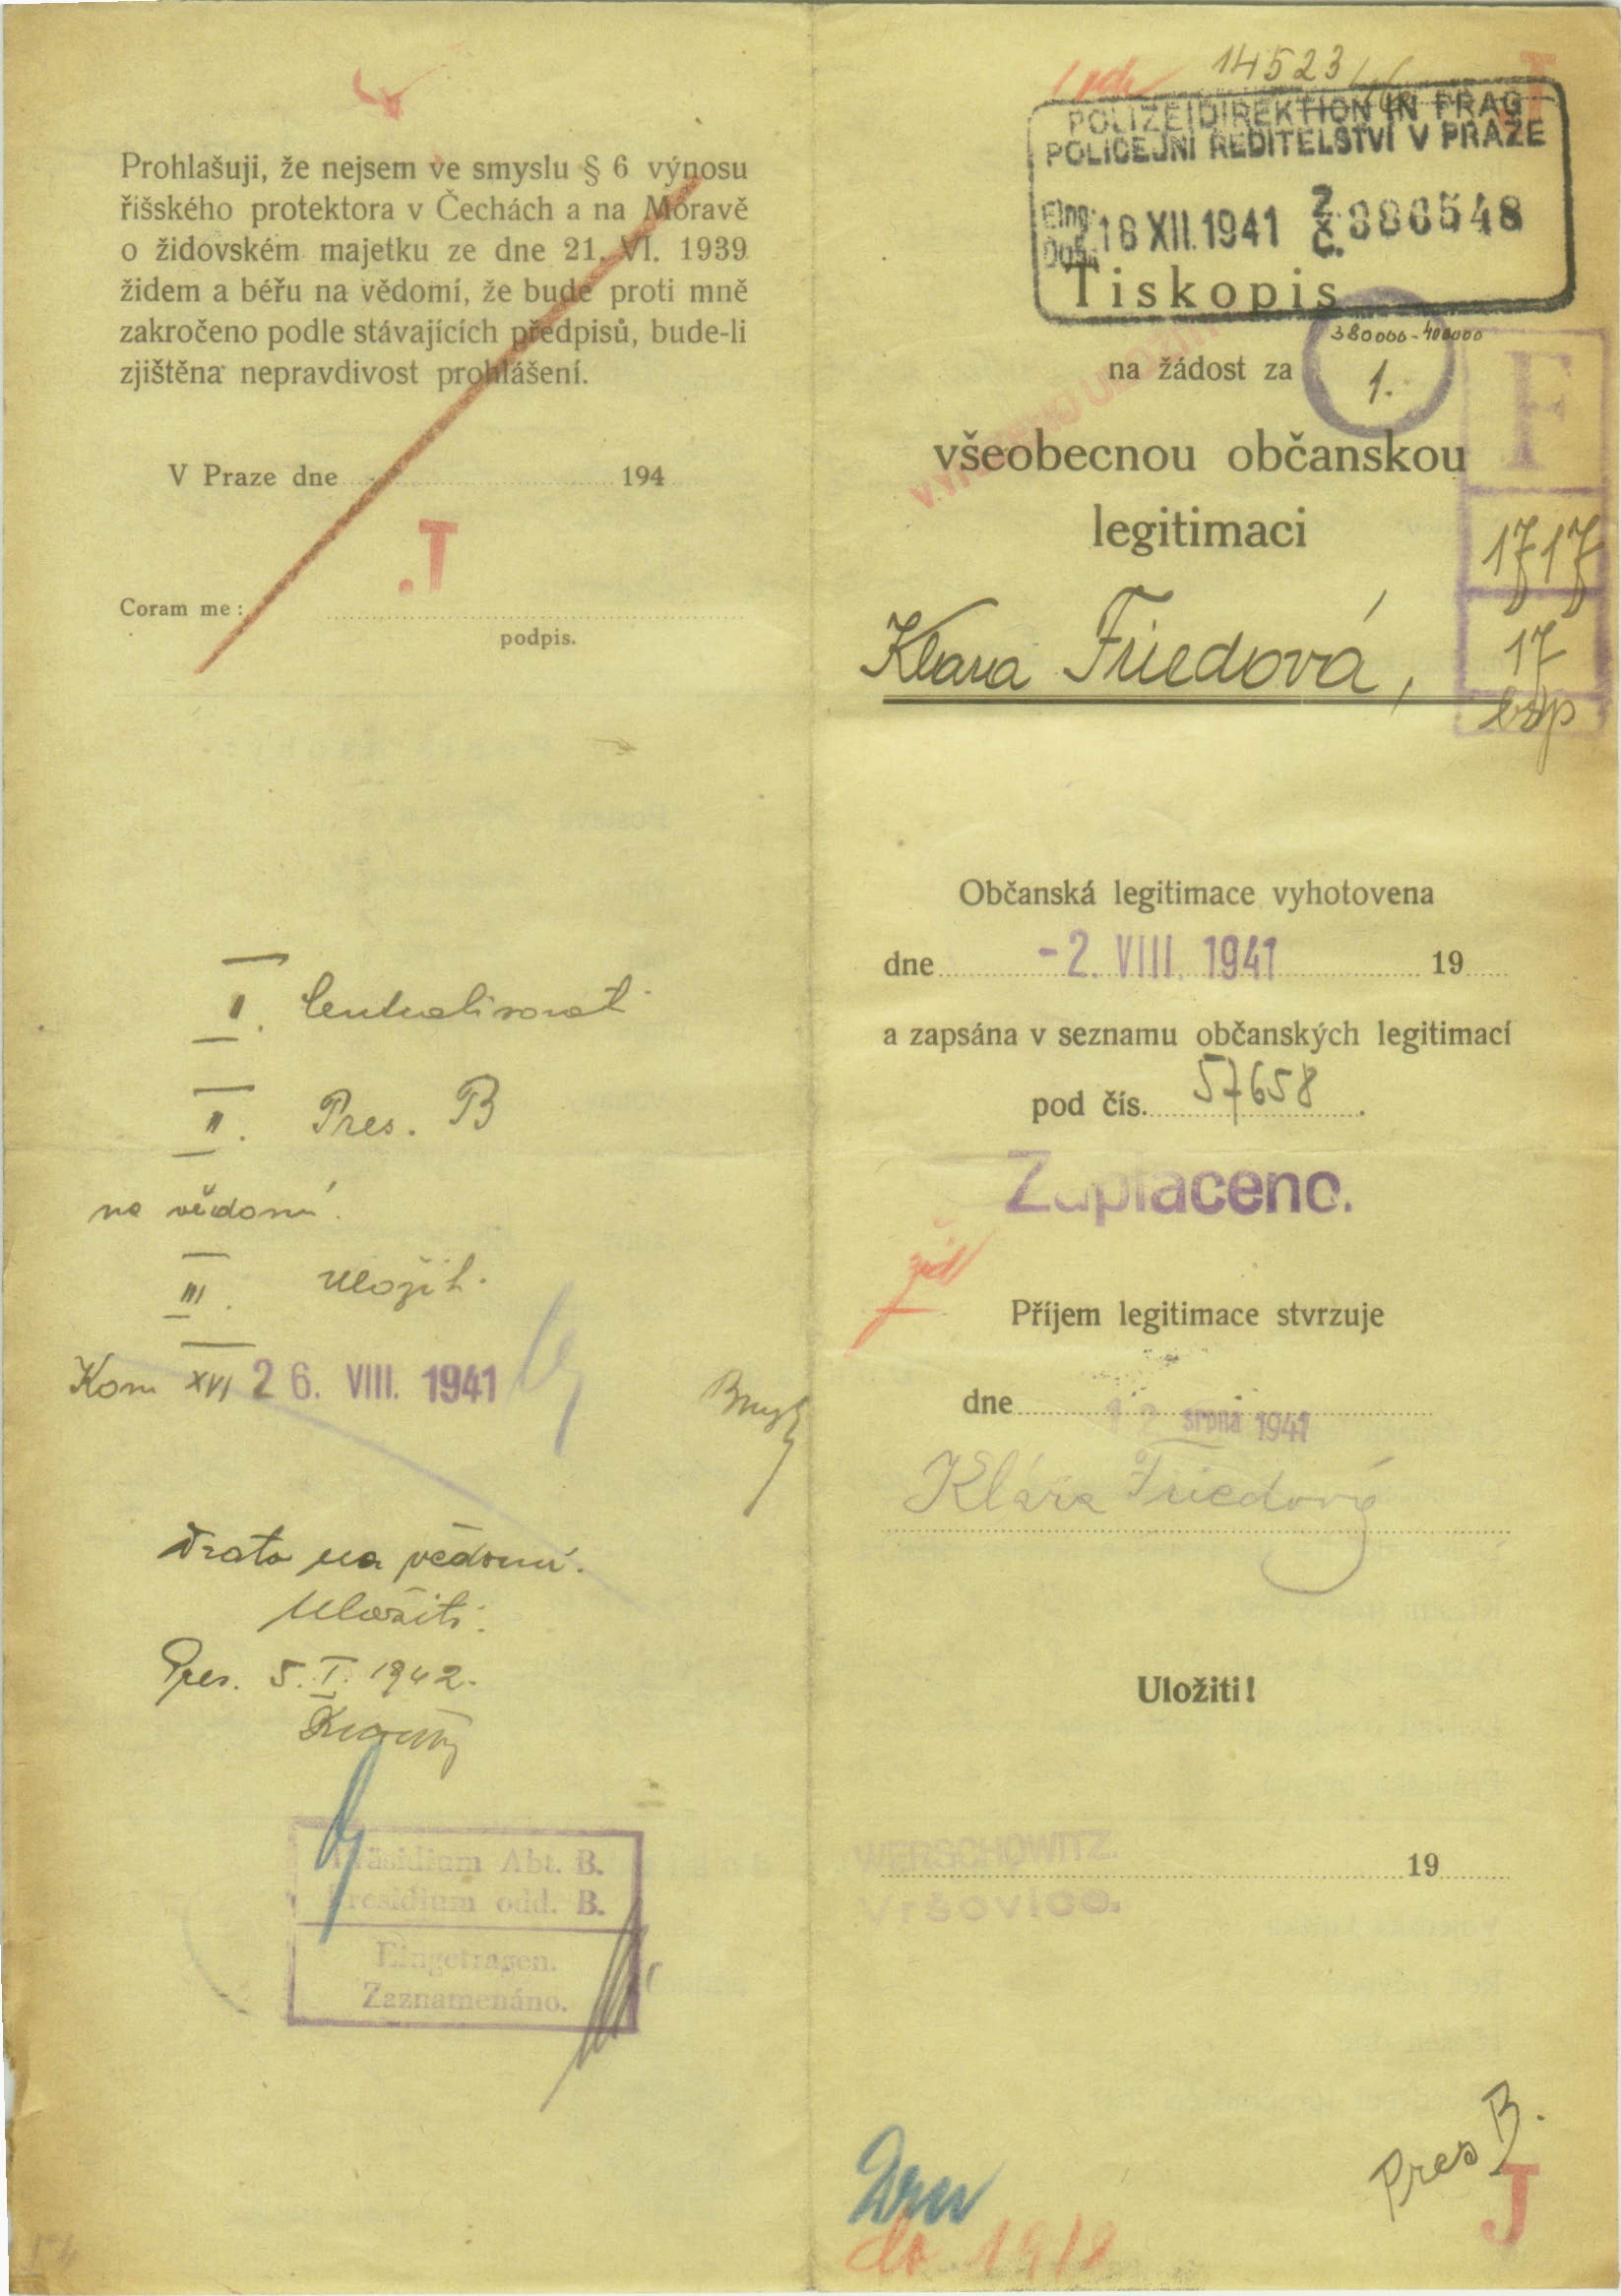 Prohlašuji, že nejsem ve smyslu § 6 výnosu
říšského protektora v Čechách a na Moravě
o židovském majetku ze dne 21. VI. 1939
židem a béřu na vědomí, že bude proti mně
zakročeno podle stávajících předpisů, bude-li
zjištěna nepravdivost prohlášení.
V Praze dne 194
.T
Coram me:
podpis.
I.
II. Pres. B
na vědomí.
III. Uložit.
Kom XVI 26. VIII. 1941
na vědomí.
Uložiti.
Pres. 5. I. 1942.
Präsidium Abt. B.
Presidium odd. B.
Eingetragen.
Zaznamenáno.
14523
POLIZEIDIREKTION IN PRAG
POLICEJNÍ ŘEDITELSTVÍ V PRAZE
18 XII. 1941 Z. Č. 386548
Tiskopis
380000-400000
na žádost za 1.
F
všeobecnou občanskou
legitimaci
1717
Klara Friedová,
17
Občanská legitimace vyhotovena
dne -2. VIII. 1941 19
a zapsána v seznamu občanských legitimací
pod čís. 57658.
Zaplaceno.
žid
Příjem legitimace stvrzuje
dne 12 srpna 1941
Klára Friedová
Uložiti!
WERSCHOWITZ.
Vršovice.
19
Pres B.
J